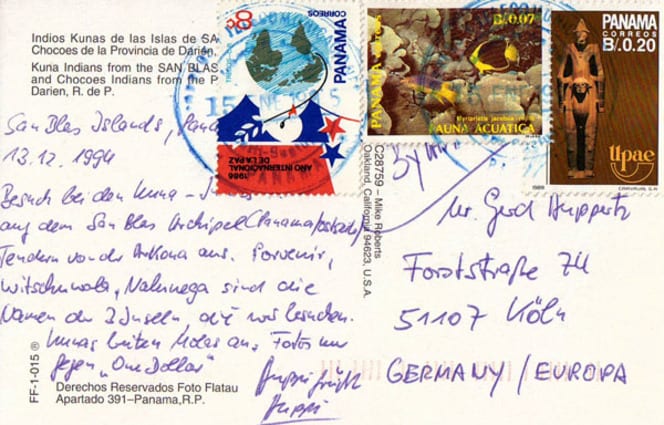 Indios Kunas de las Islas de SA
Chocoes de la Provincia de Darién,
Kuna Indians from the SAN BLAS
and Chocoes Indians from the P
Darien, R. de P.
San Blas Islands, Pana
13.12.1994
Besuch bei den Kuna -
auf dem San Blas Archipel (Panama
Tendern von der Arkona aus. Porvenir,
Witschuwala, Nalunega sind die
Namen der 3 Inseln die wir besuchen.
Kunas bieten Molas an. Fotos nur
gegen „One Dollar"
FF-1-015 ®
Derechos Reservados Foto Flatau
Apartado 391-Panama, R.P.
C28759 - Mike Roberts
Oakland, California 94623, U.S.A.
8
CORREOS
PANAMA
1986
AÑO INTERNACIONAL
DE LA PAZ
15 ENE
B/.0.07
PANAMA
FAUNA ACUATICA
PANAMA
CORREOS
B/.0.20
Upae
1989
By Air
Gerd Huppertz
Forststraße 74
51107 Köln
GERMANY / EUROPA